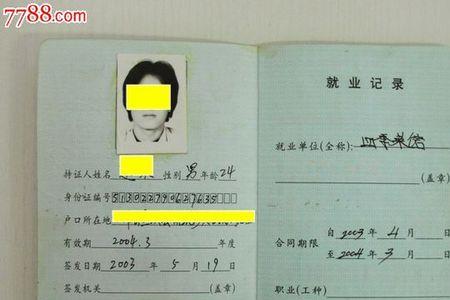 7788.com
持证人姓名 性别 男 年龄 24
身份证编号 513022790627635
户口所在地
有效期 2004.3 年度
签发日期 2003 年 5 月 19 日
签发机关 (盖章)
就业记录
就业单位(全称):
(盖章)
自 2003 年 4 月
合同期限
至 2004 年 3 月
职业(工种)